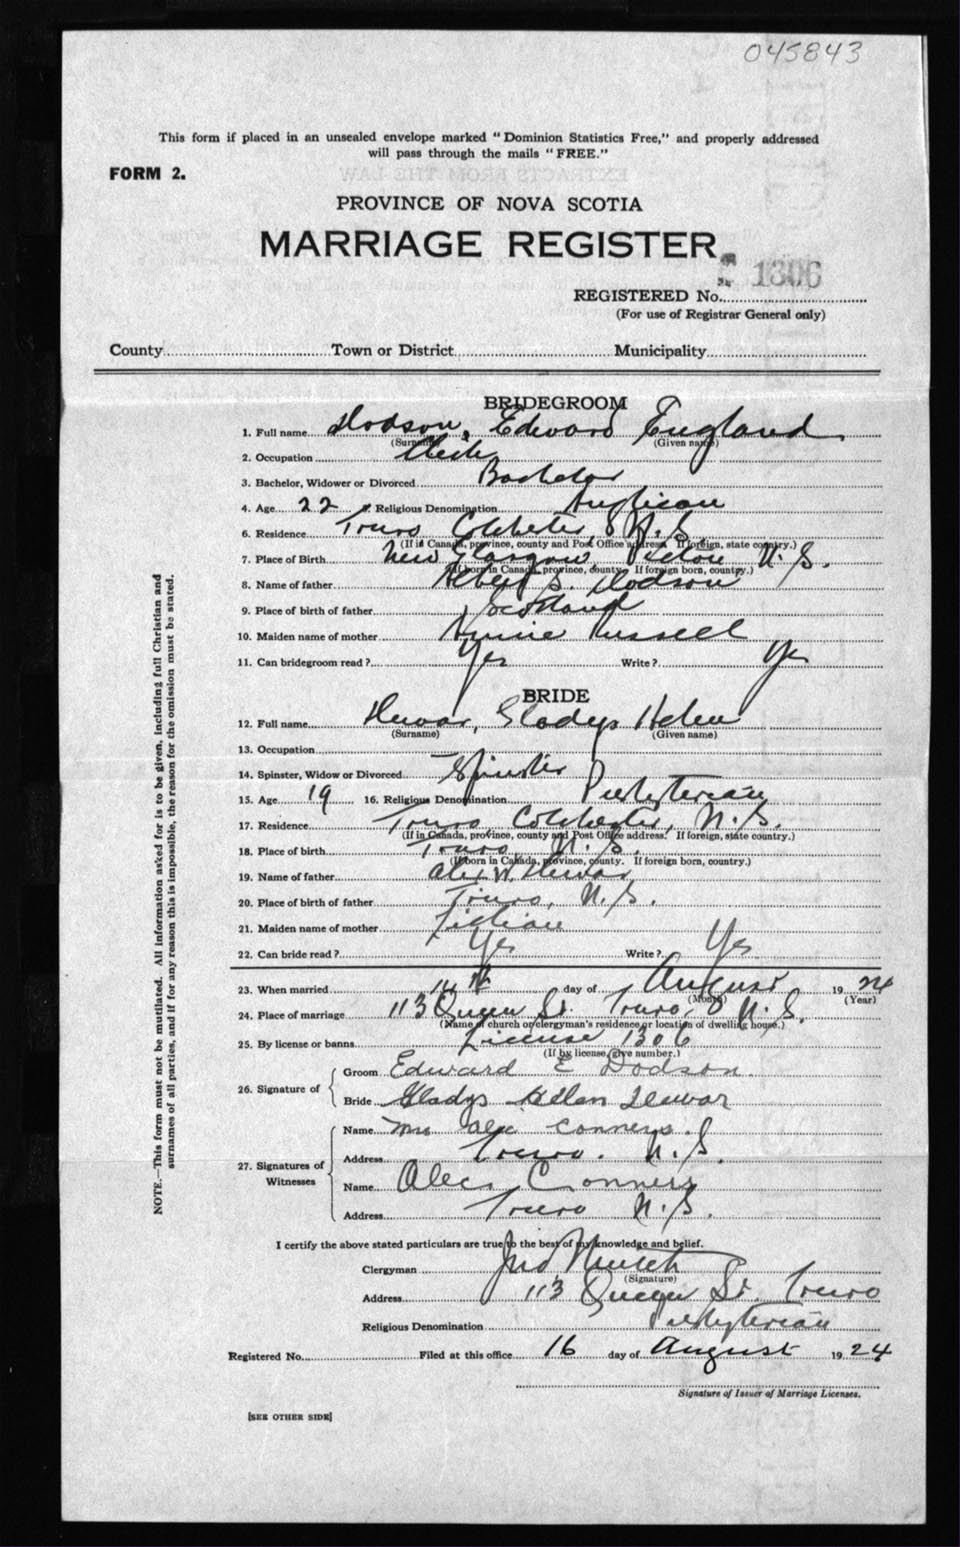 045843
This form if placed in an unsealed envelope marked "Dominion Statistics Free," and properly addressed
will pass through the mails "FREE."
FORM 2.
PROVINCE OF NOVA SCOTIA
MARRIAGE REGISTER
1306
REGISTERED No.
(For use of Registrar General only)
County Town or District Municipality
BRIDEGROOM
1. Full name Dodson, Edward England
(Surname) (Given name)
2. Occupation Clerk
3. Bachelor, Widower or Divorced Bachelor
4. Age 22 5. Religious Denomination Anglican
6. Residence Truro Colchester N.S.
(If in Canada, province, county and Post Office address. If foreign, state country.)
7. Place of Birth New Glasgow Pictou N.S.
(If born in Canada, province, county. If foreign born, country.)
8. Name of father Albert S. Dodson
9. Place of birth of father Scotland
10. Maiden name of mother Annie Russell
11. Can bridegroom read? Yes Write? Yes
BRIDE
12. Full name Dewar, Gladys Helen
(Surname) (Given name)
13. Occupation
14. Spinster, Widow or Divorced Spinster
15. Age 19 16. Religious Denomination Presbyterian
17. Residence Truro, Colchester, N.S.
(If in Canada, province, county and Post Office address. If foreign, state country.)
18. Place of birth Truro N.S.
(If born in Canada, province, county. If foreign born, country.)
19. Name of father Alex W. Dewar
20. Place of birth of father Truro, N.S.
21. Maiden name of mother
22. Can bride read? Yes Write? Yes
23. When married 14th day of August 1924
(Month) (Year)
24. Place of marriage 113 Queen St. Truro, N.S.
(Name of church or clergyman's residence or location of dwelling house.)
25. By license or banns License 1306
(If by license, give number.)
26. Signature of
Groom Edward E Dodson
Bride Gladys Helen Dewar
27. Signatures of Witnesses
Name Mrs Alex Conners
Address Truro. N.S.
Name Alec Conners
Address Truro N.S.
I certify the above stated particulars are true to the best of my knowledge and belief.
Clergyman
(Signature)
Address 113 Queen St. Truro
Religious Denomination Presbyterian
Registered No. Filed at this office 16 day of August 1924
Signature of Issuer of Marriage Licenses.
[SEE OTHER SIDE]
NOTE.—This form must not be mutilated. All information asked for is to be given, including full Christian and
surnames of all parties, and if for any reason this is impossible, the reason for the omission must be stated.